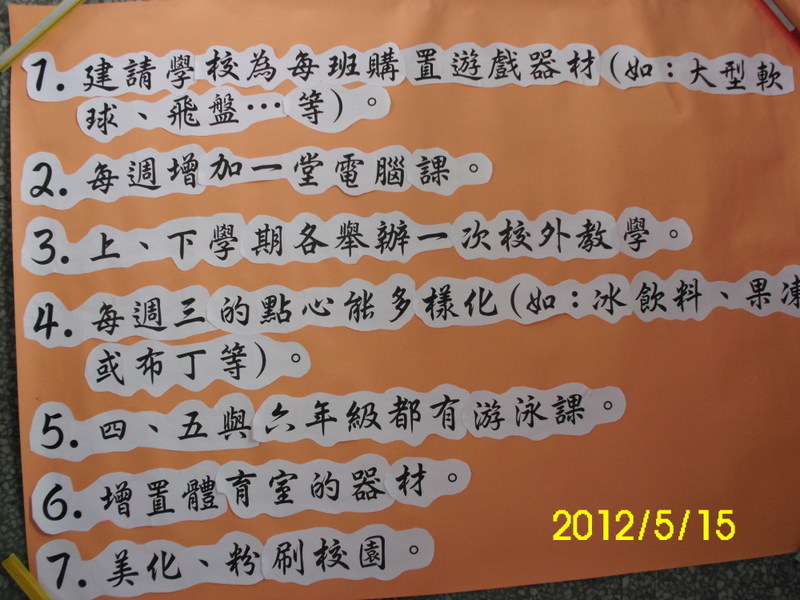 1. 建請學校為每班購置遊戲器材(如：大型軟
球、飛盤…等)。
2. 每週增加一堂電腦課。
3. 上、下學期各舉辦一次校外教學。
4. 每週三的點心能多樣化(如：冰飲料、果凍
或布丁等)。
5. 四、五與六年級都有游泳課。
6. 增置體育室的器材。
7. 美化、粉刷校園。
2012/5/15